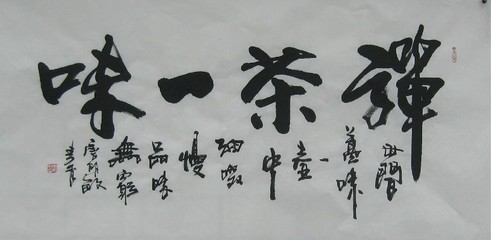 禪茶一味
世間
萬味
一壺
中
細啜
慢
品味
無窮